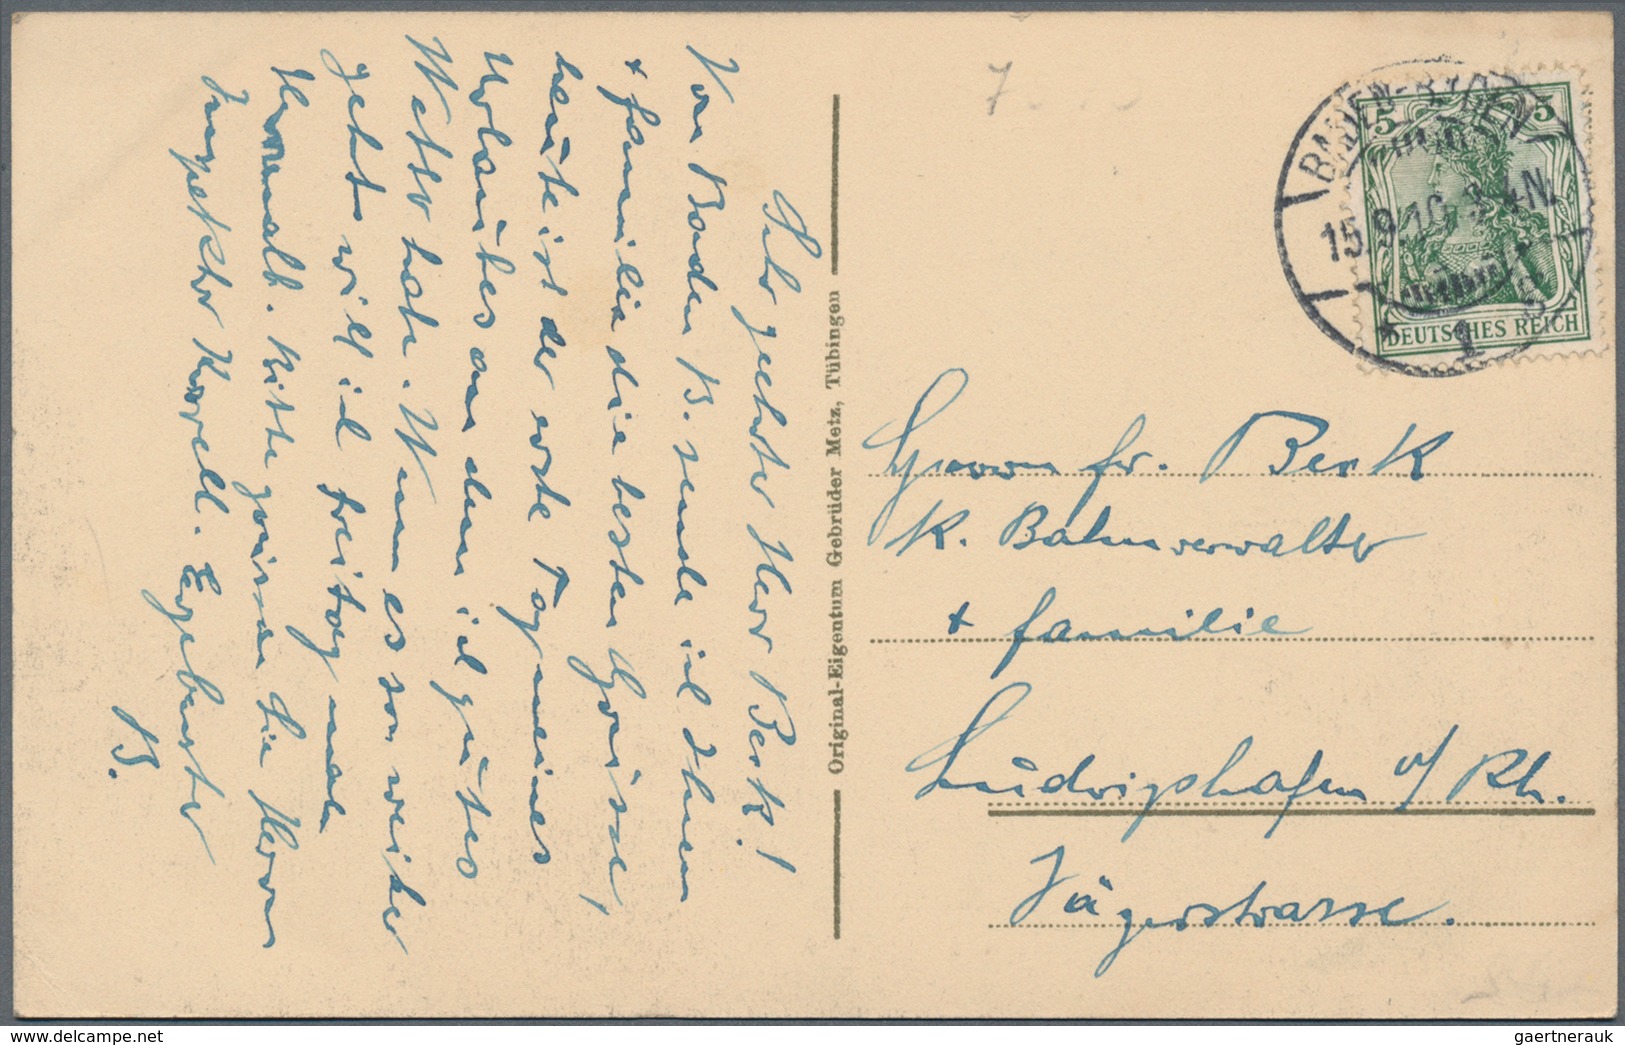 Sehr geehrter Herr Berk!
Von Baden B. sende ich Ihnen
+ familie die besten Grüsse,
heute ist der erste Tag meines
Urlaubes an dem ich gutes
Wetter habe. Wenn es so weiter
geht will ich freitag nach
Herrenalb. Bitte grüssen Sie Herrn
Inspektor Ergebenster
B.
Original-Eigentum Gebrüder Metz, Tübingen
7
BADEN-BADEN
15.9.10. 3-4N.
* 1
5 5
DEUTSCHES REICH
Herrn fr. Berk
K. Bahnverwalter
+ familie
Ludwigshafen a/Rh.
Jägerstrasse.
www.delcampe.net
gaertnerauk